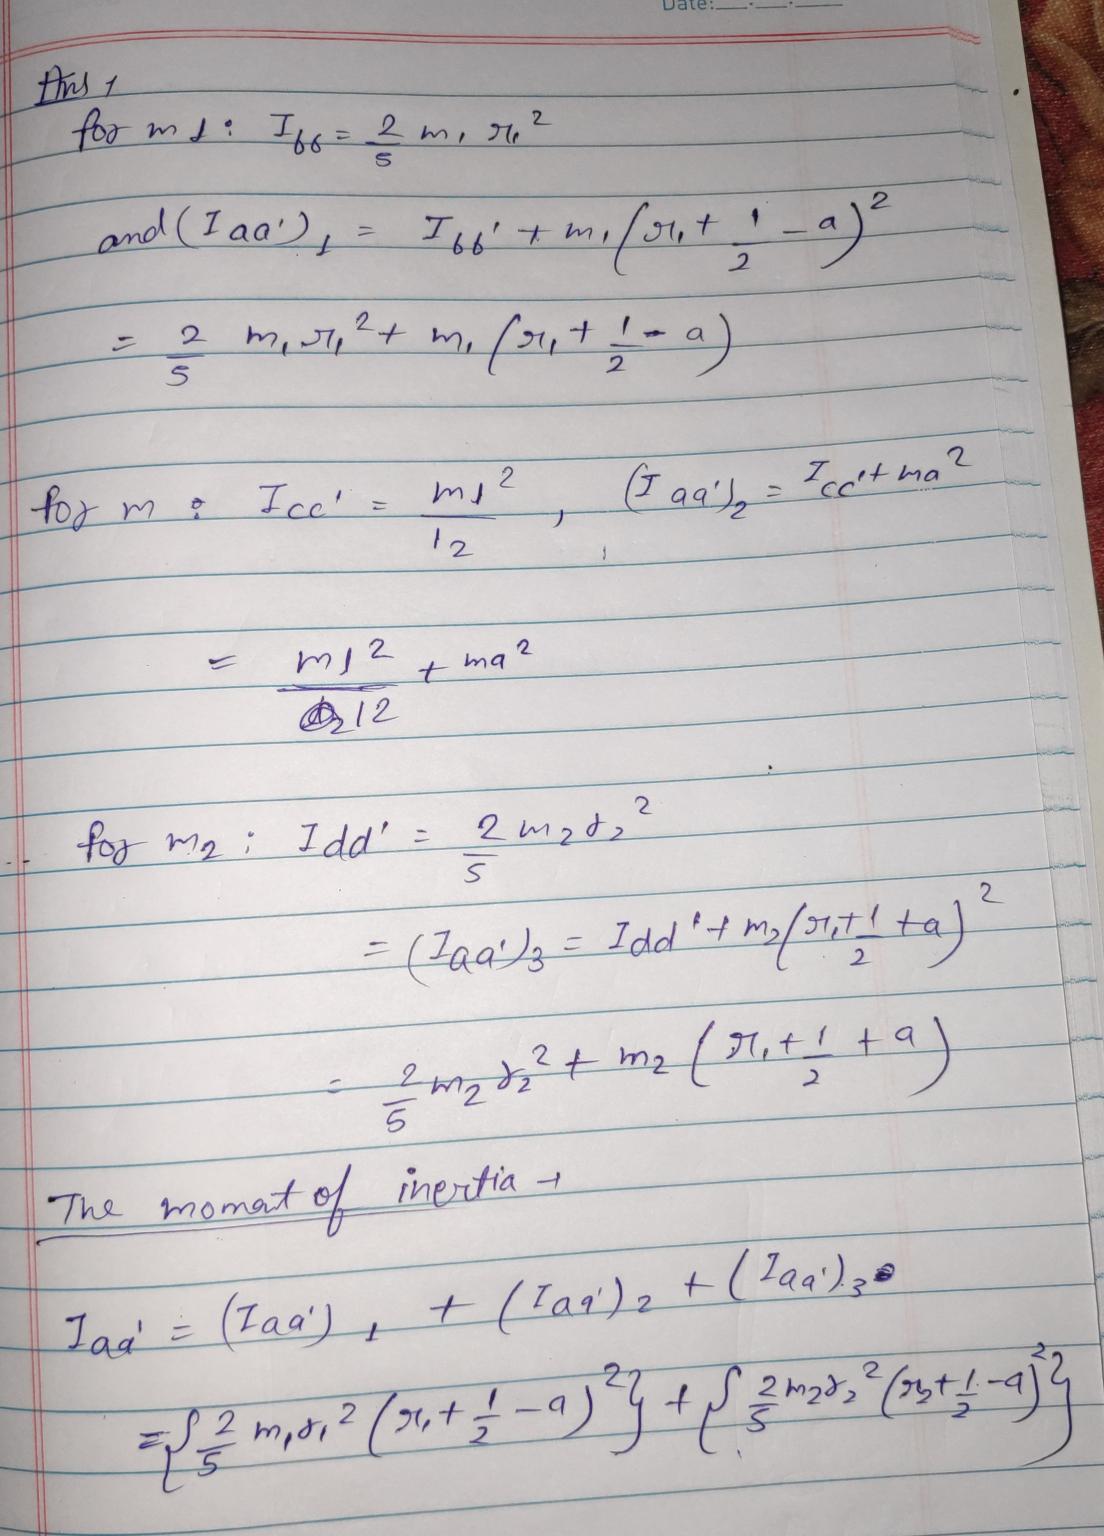 Date:
Ans 1
for m1: Ibb = 2/5 m₁ r₁²
and (Iaa')₁ = Ibb' + m₁(r₁ + 1/2 - a)²
= 2/5 m₁r₁² + m₁(r₁ + 1/2 - a)
for m: Icc' = ml²/12, (Iaa')₂ = Icc' + ma²
= ml²/12 + ma²
for m₂: Idd' = 2/5 m₂r₂²
= (Iaa')₃ = Idd' + m₂(r₁ + 1/2 + a)²
= 2/5 m₂r₂² + m₂(r₁ + 1/2 + a)
The moment of inertia →
Iaa' = (Iaa')₁ + (Iaa')₂ + (Iaa')₃
= {2/5 m₁r₁² (r₁ + 1/2 - a)²} + {2/5 m₂r₂² (r₂ + 1/2 - a)²}